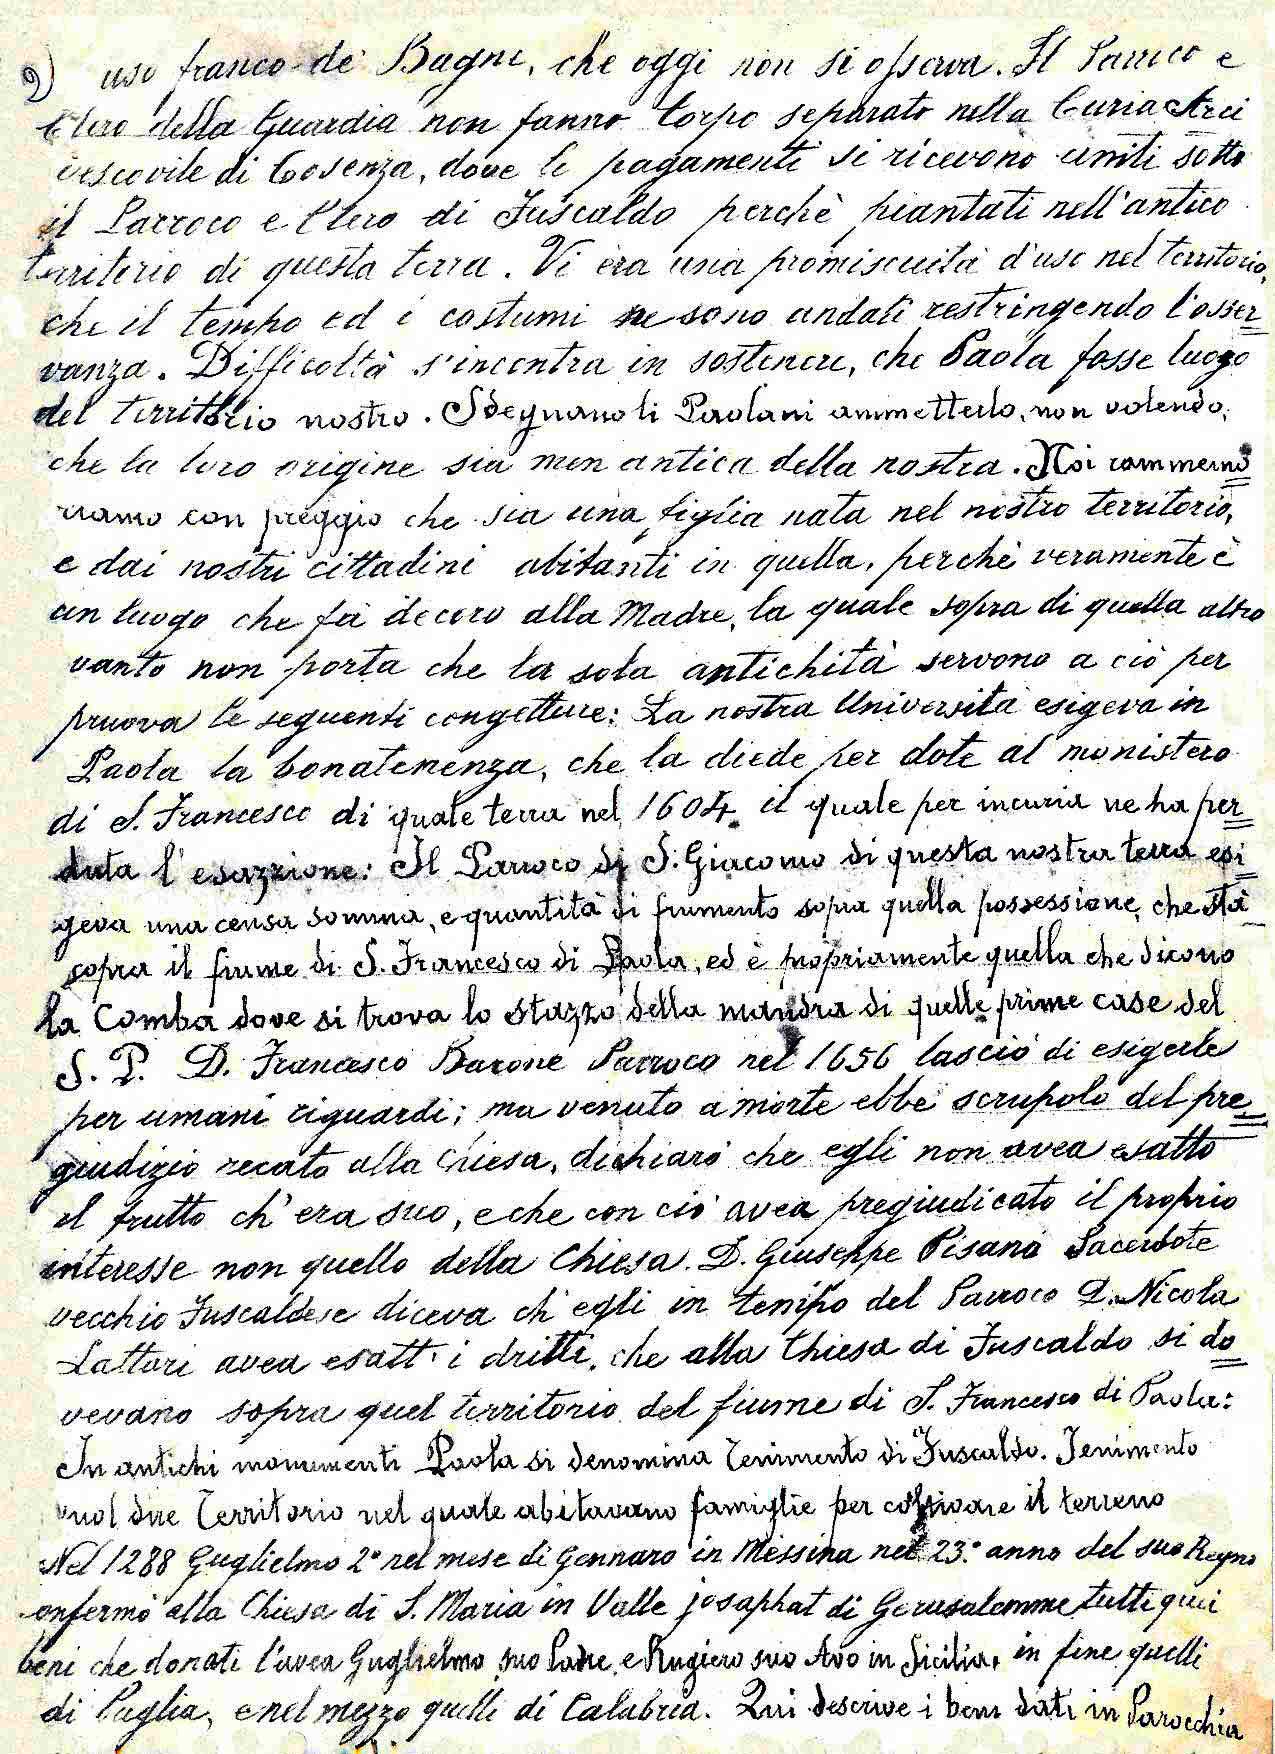 2) uso franco de' Bagni, che oggi non si osserva. Il Parroco e
Clero della Guardia non fanno Corpo separato nella Curia Arci
vescovile di Cosenza, dove le pagamenti si ricevono uniti sotto
il Parroco e Clero di Fuscaldo perchè piantati nell'antico
territorio di questa terra. Vi era una promiscuità d'uso nel territorio,
che il tempo ed i costumi ne sono andati restringendo l'osser=
vanza. Difficoltà s'incontra in sostenere, che Paola fosse luogo
del territorio nostro. Sdegnano li Paolani ammetterlo, non volendo,
che la loro origine sia men antica della nostra. Noi rammemo=
riamo con preggio che sia una figlia nata nel nostro territorio,
e dai nostri cittadini abitanti in quella, perchè veramente è
un luogo che fa decoro alla Madre, la quale sopra di quella altro
vanto non porta che la sola antichità servono a ciò per
pruova le seguenti congetture: La nostra Università esigeva in
Paola la bonatenenza, che la diede per dote al monistero
di S. Francesco di quale terra nel 1604. il quale per incuria ne ha per=
duta l'esazzione: Il Parroco di S. Giacomo di questa nostra terra esi=
geva una censa somma, e quantità di frumento sopra quella possessione, che stà
sopra il fiume di S. Francesco di Paola, ed è propriamente quella che dicono
la Comba dove si trova lo stazzo della mandra di quelle prime case del
S. P. D. Francesco Barone Parroco nel 1656 lasciò di esigerle
per umani riguardi; ma venuto a morte ebbe scrupolo del pre=
giudizio recato alla Chiesa, dichiarò che egli non avea esatto
il frutto ch'era suo, e che con ciò avea pregiudicato il proprio
interesse non quello della Chiesa. D. Giuseppe Pisano Sacerdote
vecchio Fuscaldese diceva ch'egli in tempo del Parroco D. Nicola
Lattari avea esatti i dritti, che alla Chiesa di Fuscaldo si do=
vevano sopra quel territorio del fiume di S. Francesco di Paola:
In antichi monumenti Paola si denomina Tenimento di Fuscaldo. Tenimento
vuol dire Territorio nel quale abitavano famiglie per coltivare il terreno
Nel 1288 Guglielmo 2° nel mese di Gennaro in Messina nel 23.° anno del suo Regno
confermò alla Chiesa di S. Maria in Valle josaphat di Gerusalemme tutti quei
beni che donati l'avea Guglielmo suo Padre, e Rugiero suo Avo in Sicilia, in fine quelli
di Puglia, e nel mezzo quelli di Calabria. Qui descrive i beni dati in Parocchia